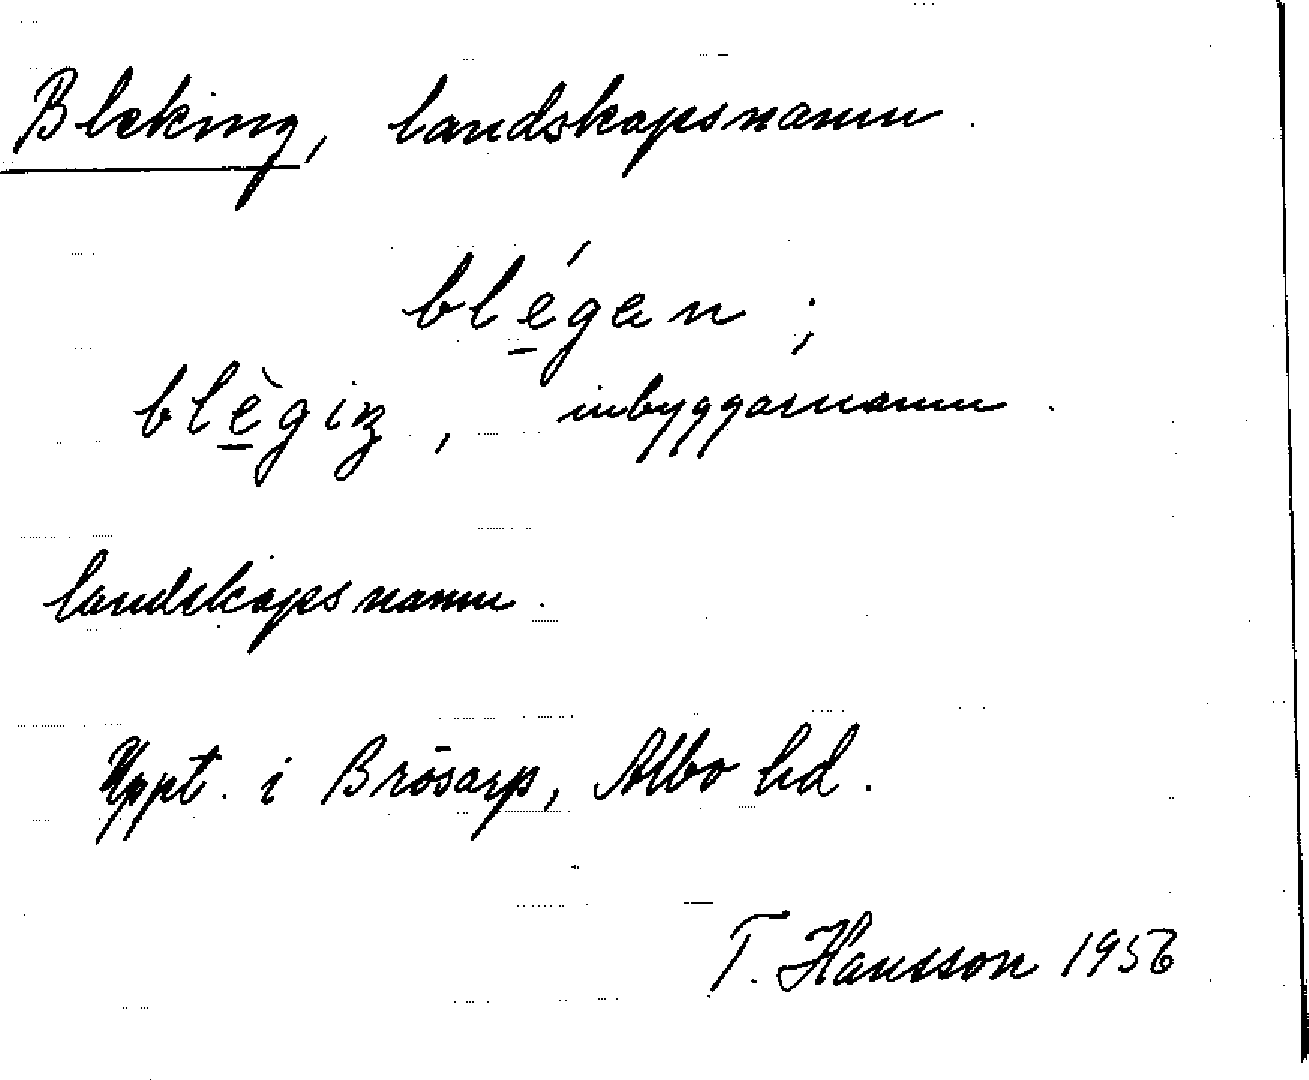 Bleking, landskapsnamn.
blégan;
blègiŋ, inbyggarnamn.
landskapsnamn.
Uppt. i Brösarp, Albo hd.
T. Hansson 1956